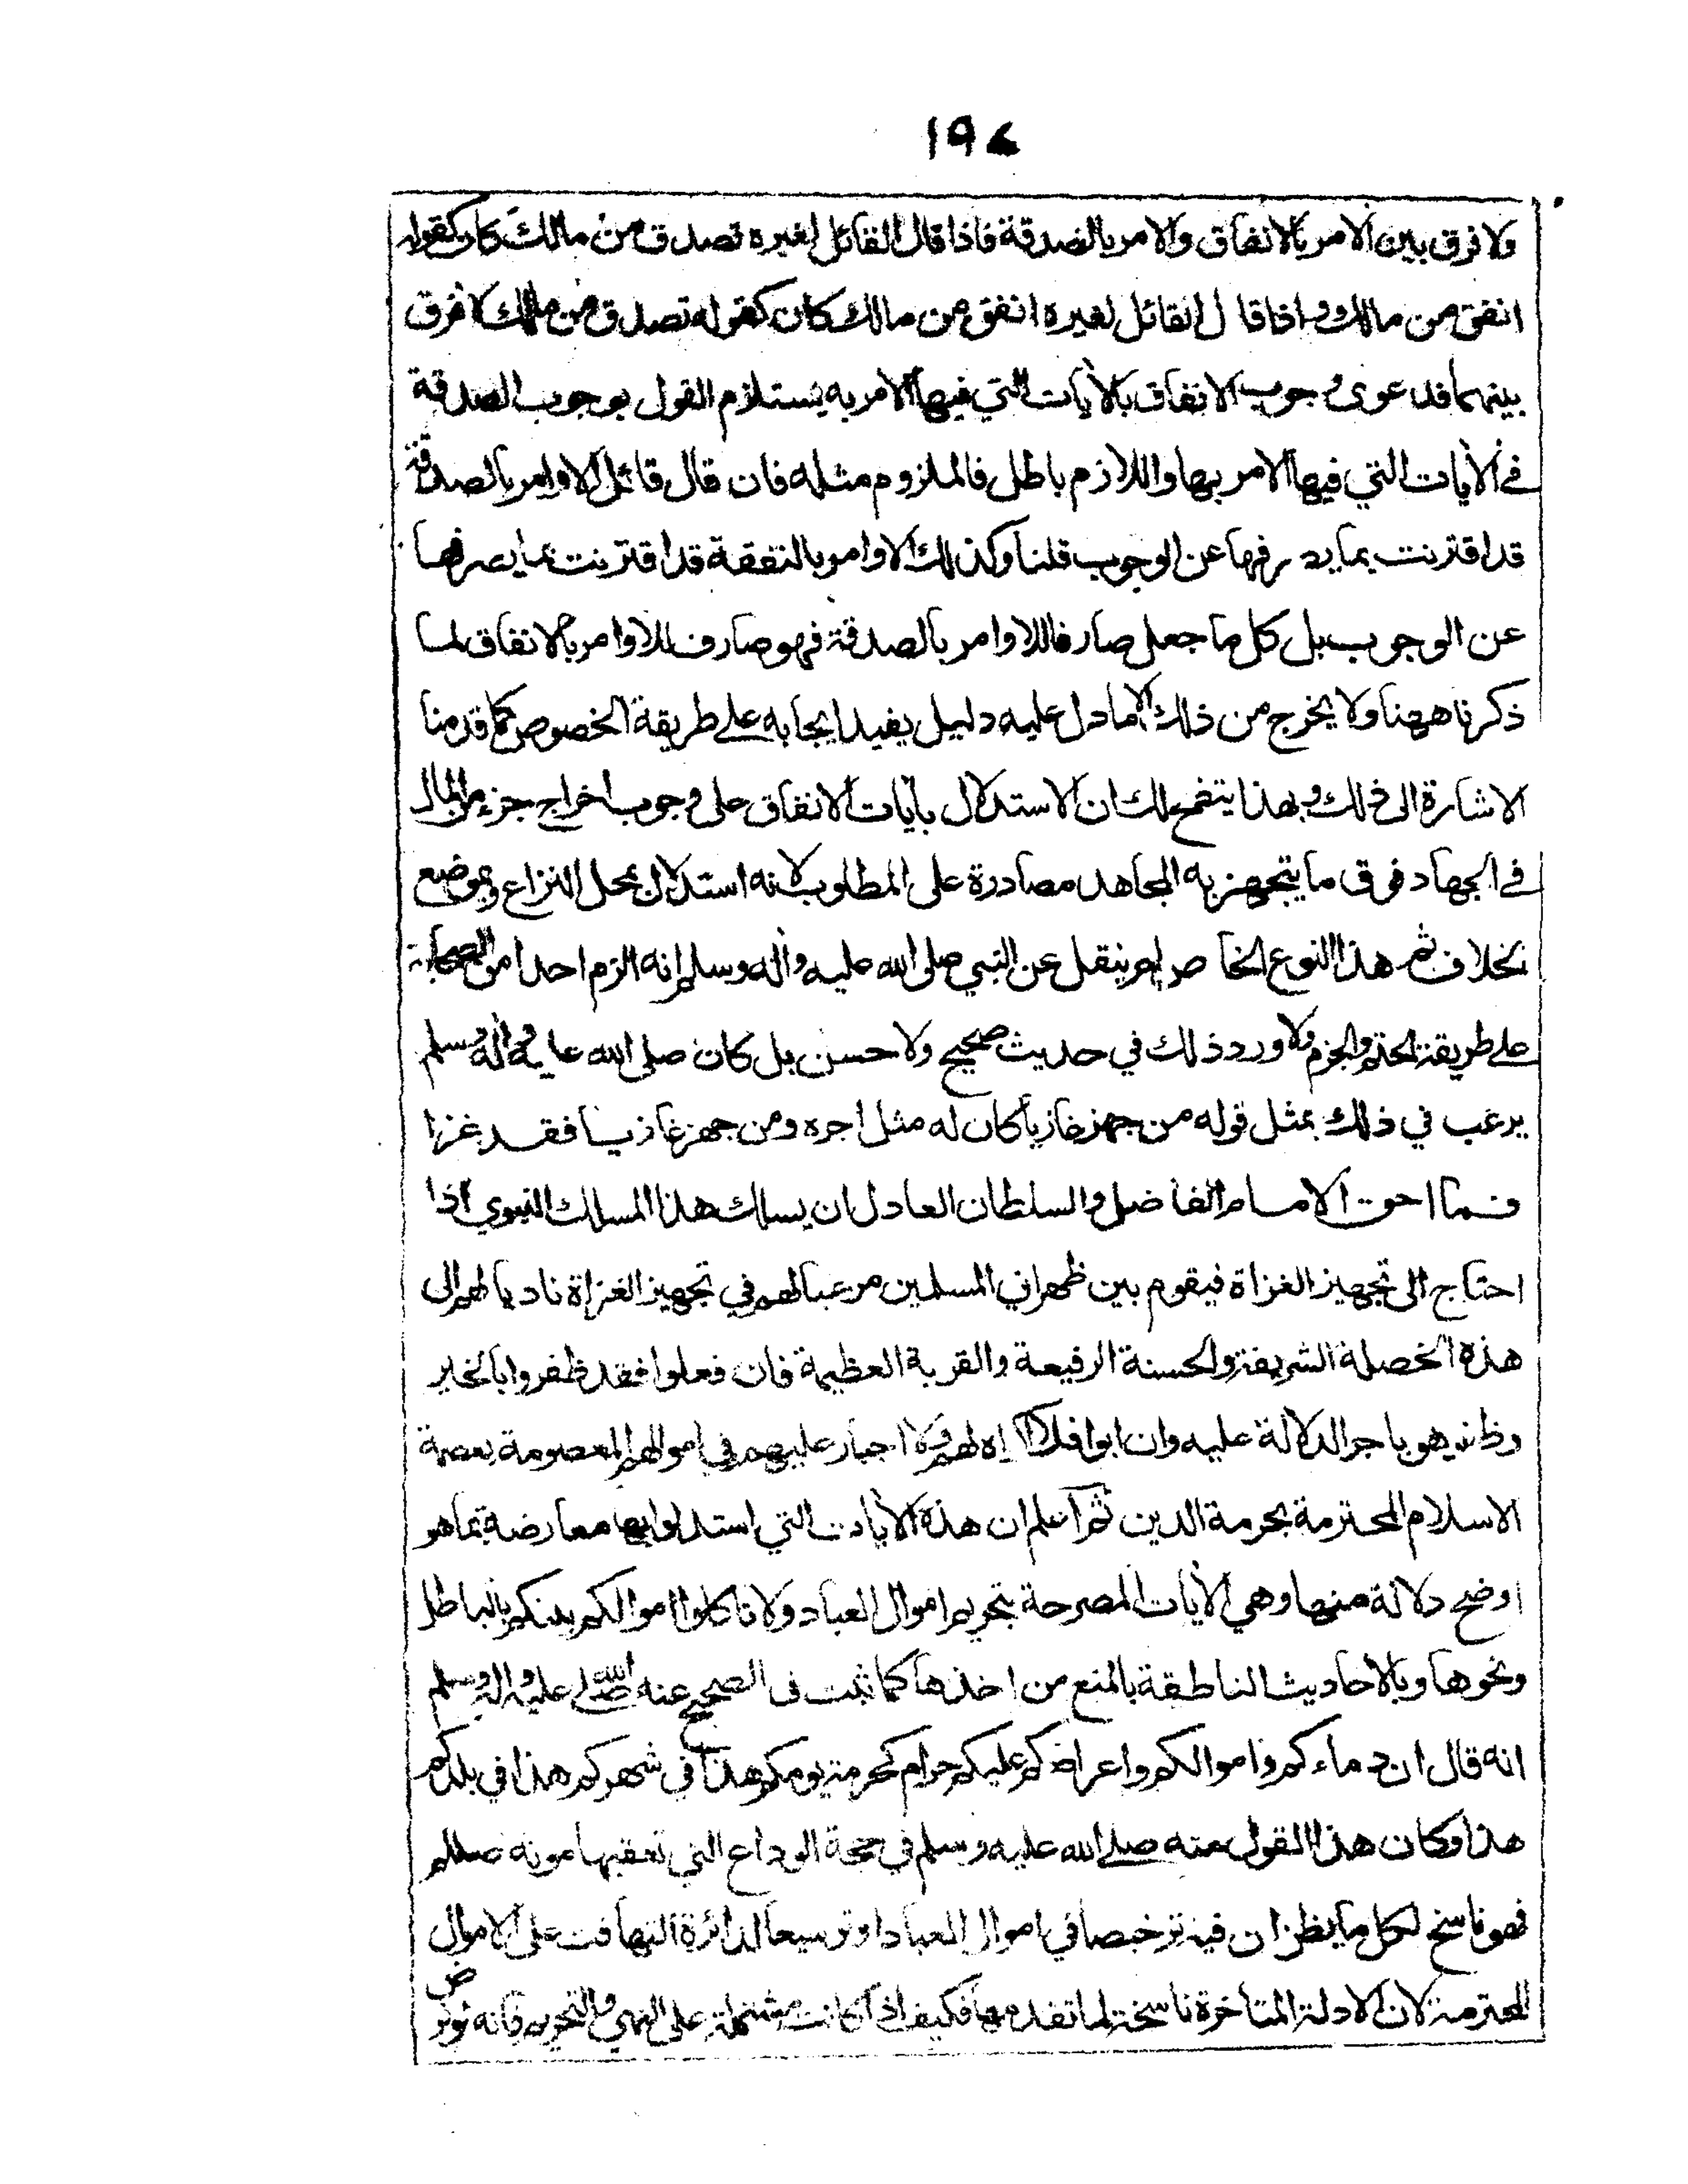 ١٩٤
ولا فرق بين الامر بالانفاق والامر بالصدقة فاذا قال القائل لغيره تصدق من مالك كان كقوله
انفق من مالك واذا قال القائل لغيره انفق من مالك كان كقوله تصدق من مالك لا فرق
بينهما فدعوى وجوب الانفاق بالأيات التي فيها الامر به يستلزم القول بوجوب الصدقة
في الأيات التي فيها الامر بها واللازم باطل فالملزوم مثله فان قال قائل الاوامر بالصدقة
قد اقترنت بما يصرفها عن الوجوب قلنا وكذلك الاوامر بالنفقة قد اقترنت بما يصرفها
عن الوجوب بل كل ما جعل صارفا للاوامر بالصدقة فهو صارف للاوامر بالانفاق لما
ذكرنا ههنا ولا يخرج من ذلك الا ما دل عليه دليل يفيد ايجابه على طريقة الخصوص كما قدمنا
الاشارة الى ذلك وبهذا يتضح لك ان الاستدلال بأيات الانفاق على وجوب اخراج جزء من المال
في الجهاد فوق ما يتجهز به المجاهد مصادرة على المطلوب لانه استدلال بمحل النزاع وبموضع
الخلاف ثم هذا النوع الخاص لم ينقل عن النبي صلى الله عليه وأله وسلم انه الزم احدا من الصحابة
على طريقة الحتم والجزم ولا ورد ذلك في حديث صحيح ولا حسن بل كان صلى الله عليه وأله وسلم
يرغب في ذلك بمثل قوله من جهز غازيا كان له مثل اجره ومن جهز غازيا فقد غزا
فما احق الامام الفاضل والسلطان العادل ان يسلك هذا المسلك النبوي اذا
احتاج الى تجهيز الغزاة فيقوم بين ظهراني المسلمين مرغبا لهم في تجهيز الغزاة نادبا لهم الى
هذه الخصلة الشريفة والحسنة الرفيعة والقربة العظيمة فان فعلوا فقد ظفروا بالخير
وظفر هو باجر الدلالة عليه وان ابوا فلا اكراه لهم ولا اجبار عليهم في اموالهم المعصومة بعصمة
الاسلام المحترمة بحرمة الدين ثم اعلم ان هذه الأيات التي استدلوا بها معارضة بما هو
اوضح دلالة منها وهي الأيات المصرحة بتحريم اموال العباد ولا تاكلوا اموالكم بينكم بالباطل
ونحوها وبالاحاديث الناطقة بالمنع من اخذها كما ثبت في الصحيح عنه صلى الله عليه وأله وسلم
انه قال ان دماءكم واموالكم واعراضكم عليكم حرام كحرمة يومكم هذا في شهركم هذا في بلدكم
هذا وكان هذا القول منه صلى الله عليه وسلم في حجة الوداع التي تعقبها موته صللم
فهو ناسخ لكل ما يظن ان فيه ترخيصا في اموال العباد او توسيعا لدائرة التهافت على الاموال
المحترمة لان الادلة المتاخرة ناسخة لما تقدمها فكيف اذا كانت مشتملة على النهي والتحريم فانه